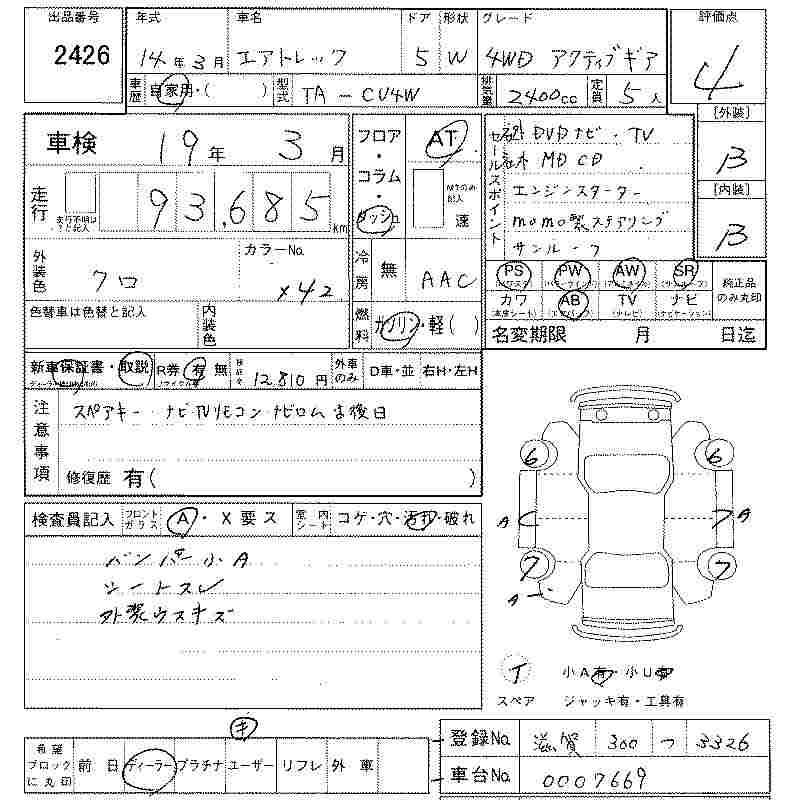 出品番号 2426
年式 車名 ドア 形状 グレード 評価点
14年3月 エアトレック 5 W 4WD アクティブギア 4
車歴 自家用・( ) 型式 TA-CU4W 排気量 2400cc 定員 5人
車検 19年 3月
フロア・コラム・ダッシュ AT MTのみ記入 速
セールスポイント
DVDナビ・TV
MD CD
エンジンスターター
momo製ステアリング
サンルーフ
[外装] B
[内装] B
走行 走行不明は?と記入 93,685 km
外装色 クロ カラーNo. X42
冷房 無 AAC
PS (パワステ) PW (パワーウインド) AW (アルミホイル) SR (サンルーフ) 純正品のみ丸印
カワ (本皮シート) AB (エアバッグ) TV (テレビ) ナビ (ナビゲーション)
色替車は色替と記入 内装色
燃料 ガソリン・軽( )
名変期限 月 日迄
新車保証書・取説 R券 有 無 リサイクル券 12,810円 外車のみ D車・並 右H・左H
注意事項 スペアキー ナビTVリモコン ナビロム 後日
修復歴 有( )
検査員記入 フロントガラス A・X 要 ス 室内シート コゲ・穴・汚れ・破れ
バンパー小A
シートスレ
外装ウスキズ
6 6
A A
7 7
A
イ 小A有・小U有
スペア ジャッキ有・工具有
希望ブロックに丸印 前日 ディーラー プラチナ ユーザー リフレ 外車
登録No. 滋賀 300 つ 3326
車台No. 0007669